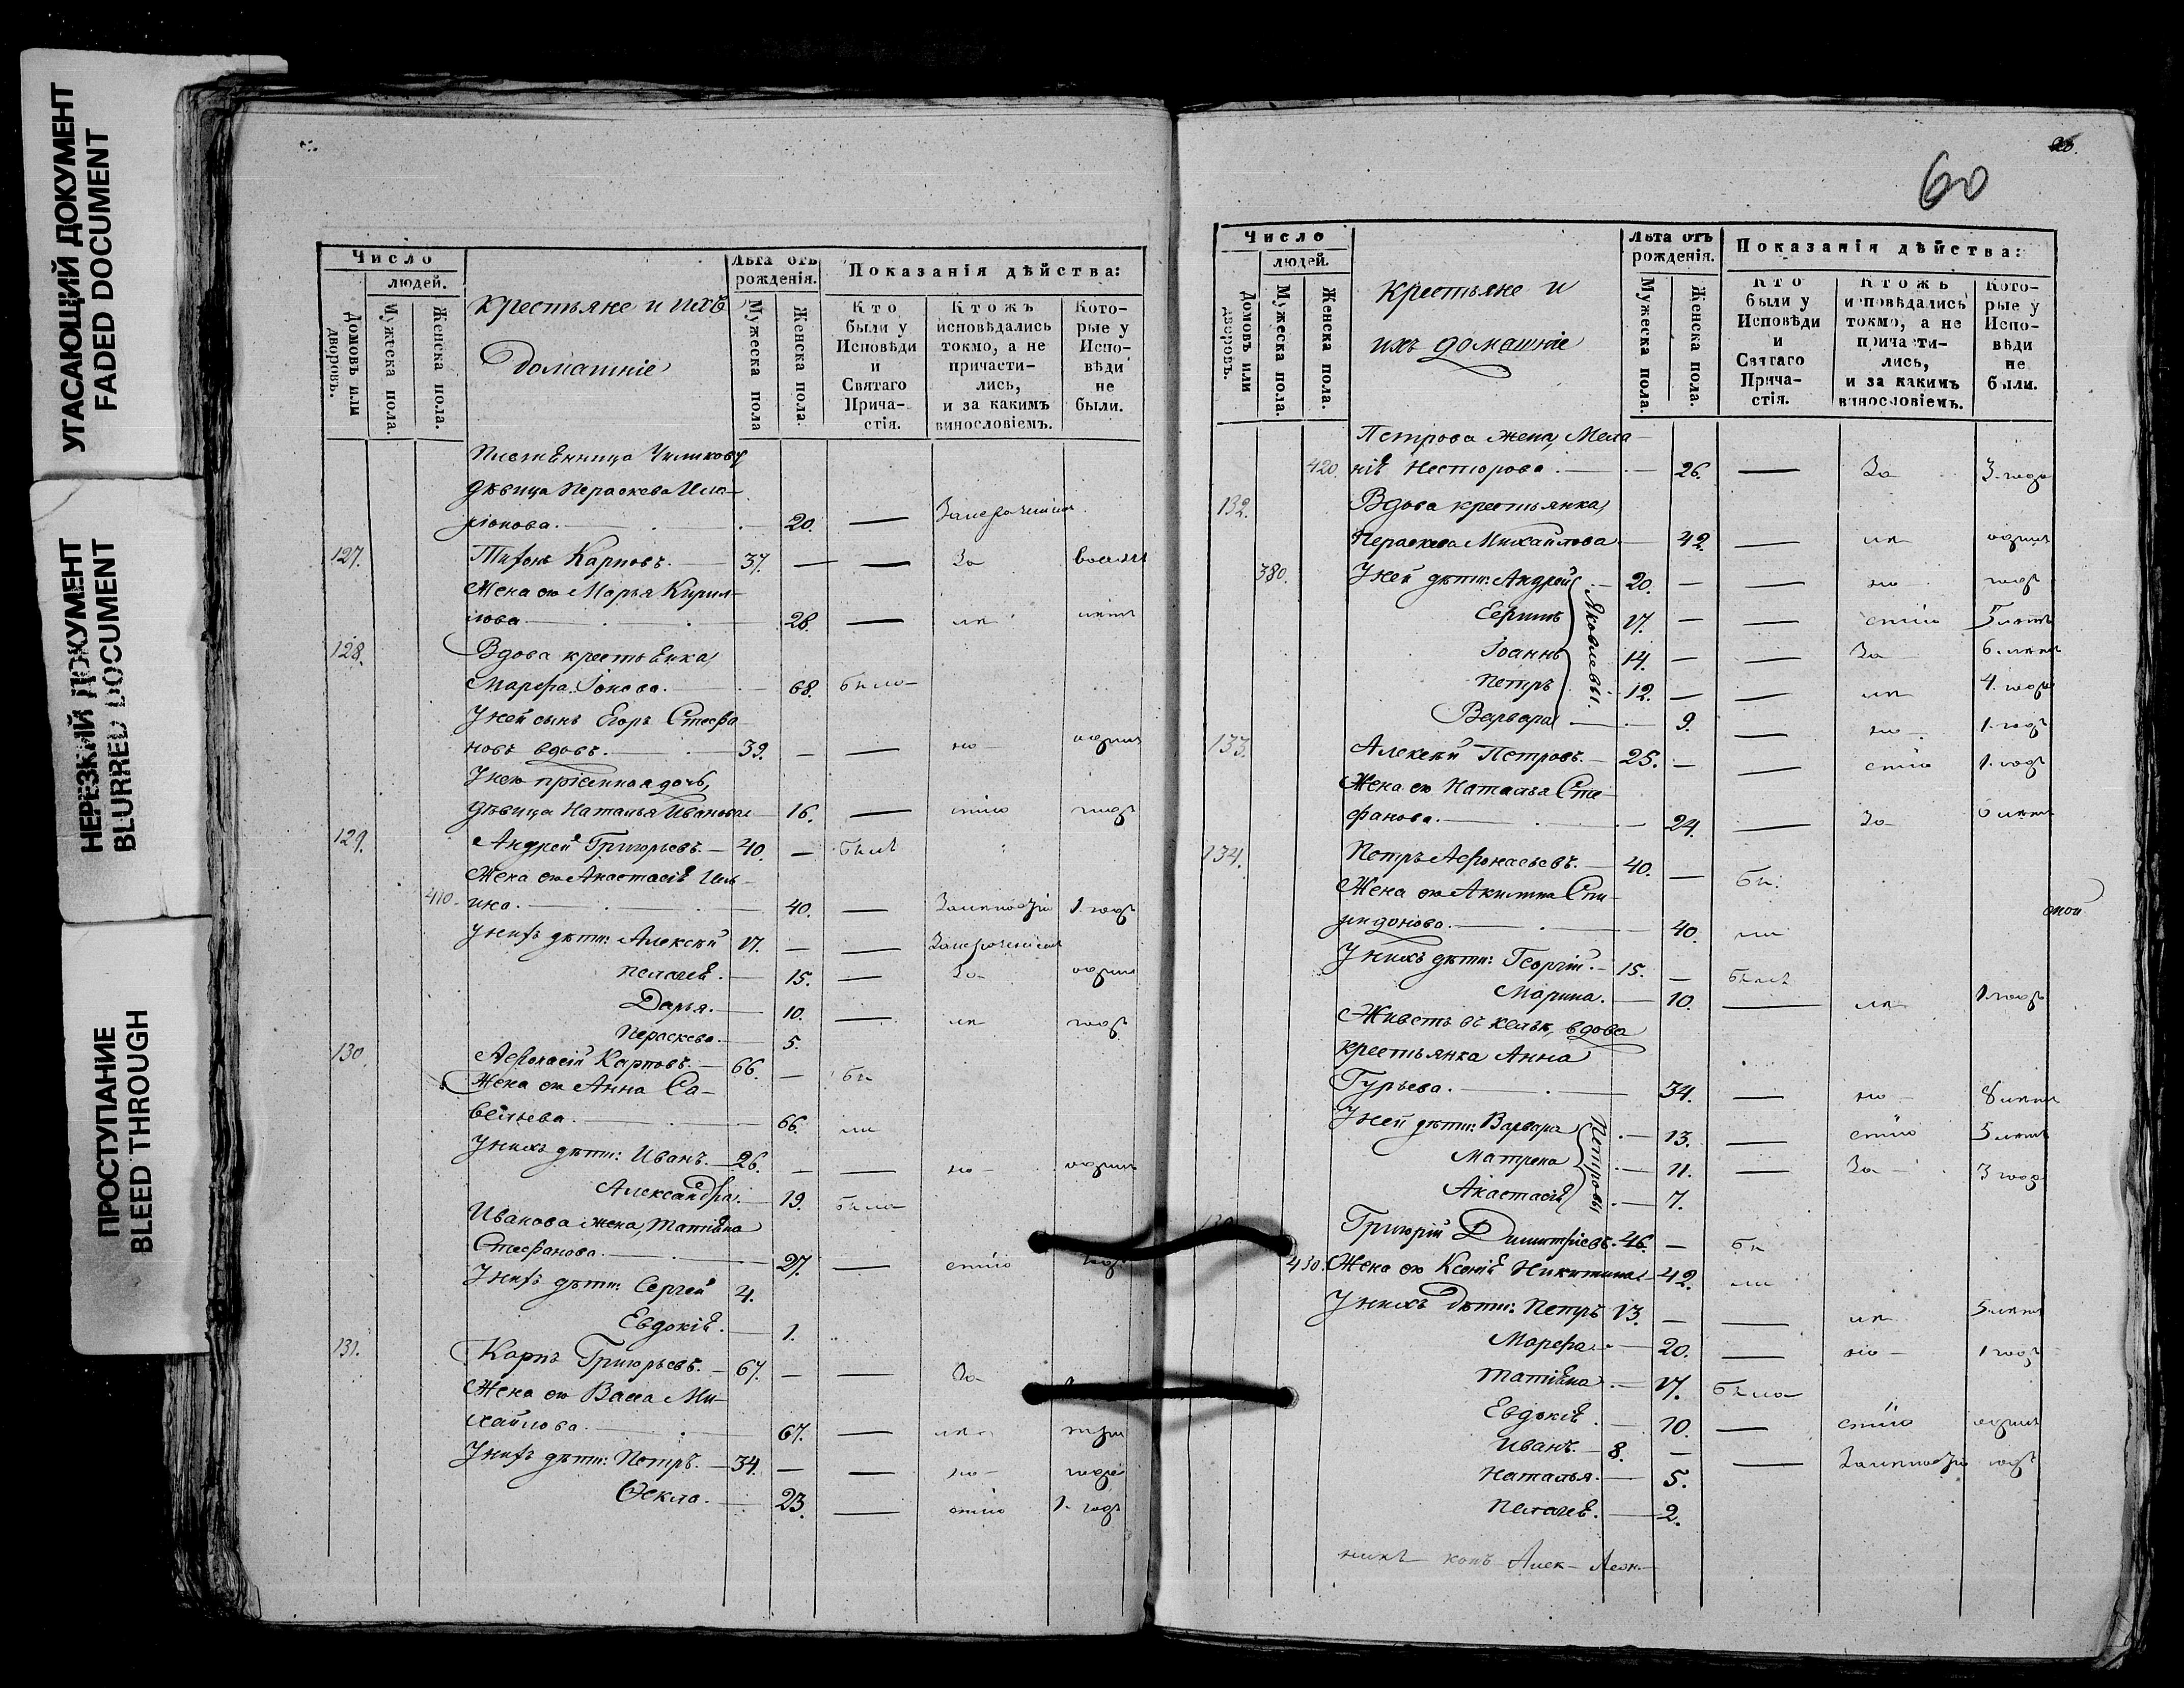 УГАСАЮЩИЙ ДОКУМЕНТ
FADED DOCUMENT
НЕРЕЗКИЙ ДОКУМЕНТ
BLURRED DOCUMENT
ПРОСТУПАНИЕ
BLEED THROUGH
Число
людей.
Домовъ или дворовъ.
Мужеска пола.
Женска пола.
крестьяне и ихъ
домашніе
Лѣта отъ рожденія.
Мужеска пола
Женска пола.
Показанія дѣйства:
Кто были у Исповѣди и Святаго Прича-стія.
Ктожъ исповѣдались токмо, а не причасти-лись, и за какимъ винословіемъ.
Кото-рые у Испо-вѣди не были.
дѣвица Параскева Ила-
ріонова. 20.
127. Карповъ. 37. — — За
Жена ею Марья Кирил-
лова 28. —
128. Вдова
Марфа Іонова. 68. была
У ней сынъ Егоръ Стефа-
новъ вдовъ. 39. — — но
дочь,
дѣвица Наталья Иванова 16. — стію годъ
129. Андрей Григорьевъ. 40. — былъ
Жена ею Анастасія Иль-
410. ина. 40. — 1 годъ
У нихъ дѣти: Алексѣй 17. — —
Пелагея. 15. — За
Дарья. 10. — годъ
Параскева. 5.
130. Афонасій Карповъ. 66. — бы
Жена ею Анна Са-
вельева. 66. ли
У нихъ дѣти: Иванъ. 26. — — но
Александра. 19. была
Иванова жена, Татіана
Стефанова. 27. — стію годъ
У нихъ дѣти: Сергей 4.
Евдокія. 1.
131. Карпъ Григорьевъ. 67. — — За
Жена ею Васса Ми-
хайлова. 67. — три
У нихъ дѣти: Петръ. 34. — — но года
Ѳекла. 23. — стію 1. годъ
60
Число
людей.
Домовъ или дворовъ.
Мужеска пола.
Женска пола.
крестьяне и
ихъ домашніе
Лѣта отъ рожденія.
Мужеска пола.
Женска пола.
Показанія дѣйства:
Кто были у Исповѣди и Святаго Прича-стія.
Ктожъ исповѣдались токмо, а не причасти-лись, и за какимъ винословіемъ.
Кото-рые у Испо-вѣди не были.
Петрова жена, Мела-
420. нія Несторова. 26. — За 3. года
132. Вдова крестьянка,
Параскева Михайлова 42. —
380. У ней дѣти: Андрей 20. — — но годъ
17. — — стію 5 лѣтъ
Іоаннъ 14. — — За 6. лѣтъ
Петръ 12. — — 4. года
Варвара 9. — но 1. годъ
Яковлевы.
133. Алексѣй Петровъ. 25. — — стію 1. годъ
Жена ею Наталья Сте-
фанова. 24. — За 6 лѣтъ
134. Петръ Афонасьевъ. 40. — бы
Жена ею Акилина Спи-
ридонова. 40. ли
У нихъ дѣти: Георгій. 15. — былъ
Марина. 10. — 1. годъ
Живетъ въ кельи, вдова
крестьянка Анна
Гурьева. 34. — но 8 лѣтъ
У ней дѣти: Варвара 13. — стію 5 лѣтъ
Матрена 11. — За 3 года
Анастасія 7.
Петровы
Григорій Димитріевъ. 46. — бы
430. Жена ею Ксенія Никитина 42. ли
У нихъ дѣти: Петръ 13. — — 5. лѣтъ
Марфа 20. — но 1 годъ
Татіана 17. была
Евдокія. 10. — стію
Иванъ. 8. — — годъ
Наталья. 5.
Пелагея. 2.